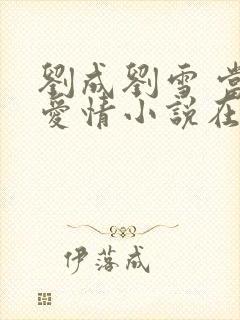 劉成劉雪 當
愛情小說在
伊落成